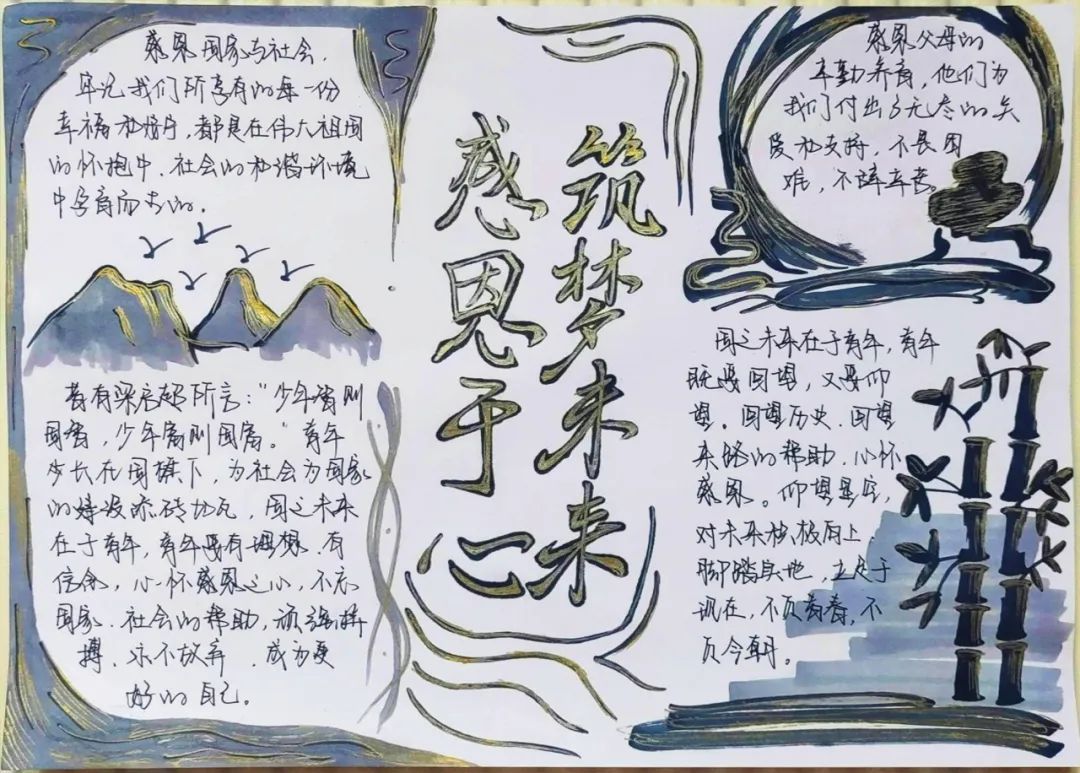 感恩国家与社会，
牢记我们所享有的每一份
幸福和恬宁，都是在伟大祖国
的怀抱中、社会的和谐环境
中孕育而去的。
昔有梁启超所言：“少年智则
国智，少年富则国富。”青年
生长在国旗下，为社会为国家
的建设添砖加瓦，国之未来
在于青年，青年要有理想、有
信念，心怀感恩之心，不忘
国家、社会的帮助，顽强拼
搏、永不放弃、成为更
好的自己。
感恩于心
筑梦未来
感恩父母的
辛勤养育，他们为
我们付出了无尽的关
爱和支持，不畏困
难，不辞辛苦。
国之未来在于青年，青年
既要回望，又要仰
望。回望历史、回望
来路的帮助，心怀
感恩。仰望星空，
对未来积极向上，
脚踏实地，立足于
现在，不负青春，不
负今朝。